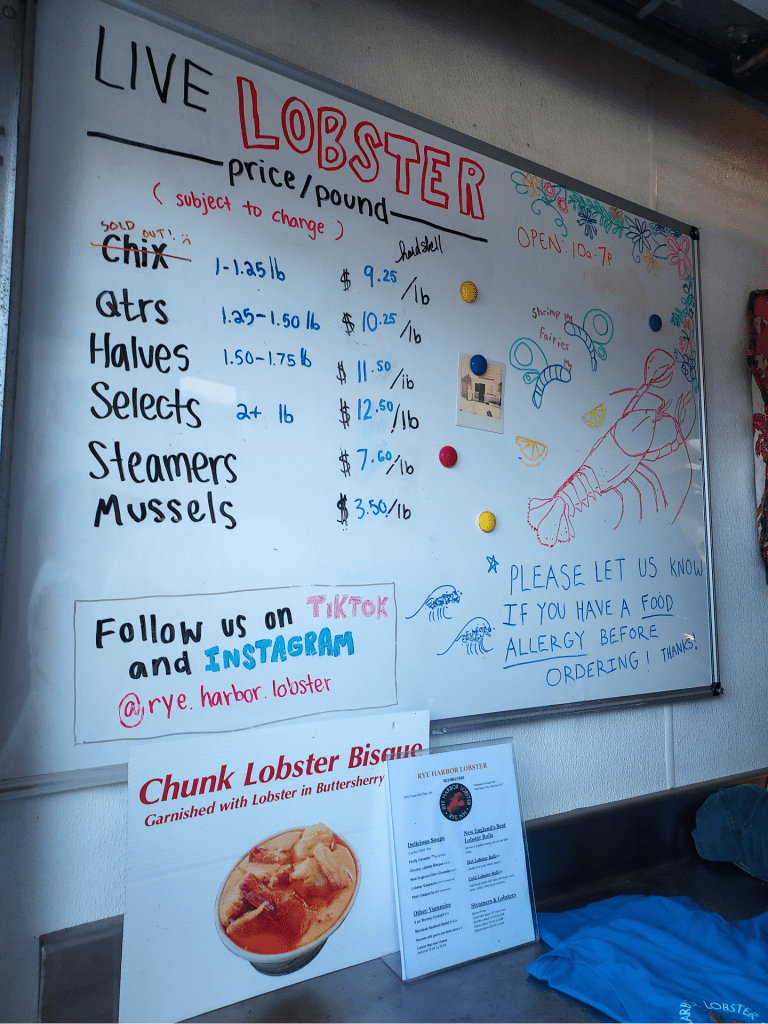 LIVE LOBSTER
price/pound
( subject to change )
hardshell
SOLD OUT!
Chix 1-1.25 lb $ 9.25 /lb
Qtrs 1.25-1.50 lb $ 10.25 /lb
Halves 1.50-1.75 lb $ 11.50 /lb
Selects 2+ lb $ 12.50 /lb
Steamers $ 7.60 /lb
Mussels $ 3.50 /lb
OPEN: 10a-7p
shrimp
fairies
PLEASE LET US KNOW
IF YOU HAVE A FOOD
ALLERGY BEFORE
ORDERING! THANKS!
Follow us on TIKTOK
and INSTAGRAM
@rye.harbor.lobster
Chunk Lobster Bisque
Garnished with Lobster in Buttersherry
RYE HARBOR LOBSTER
Delicious Soups
New England's Best
Lobster Rolls
Hot Lobster Roll
Cold Lobster Roll
Other Yummies
Steamers & Lobsters
LOBSTER